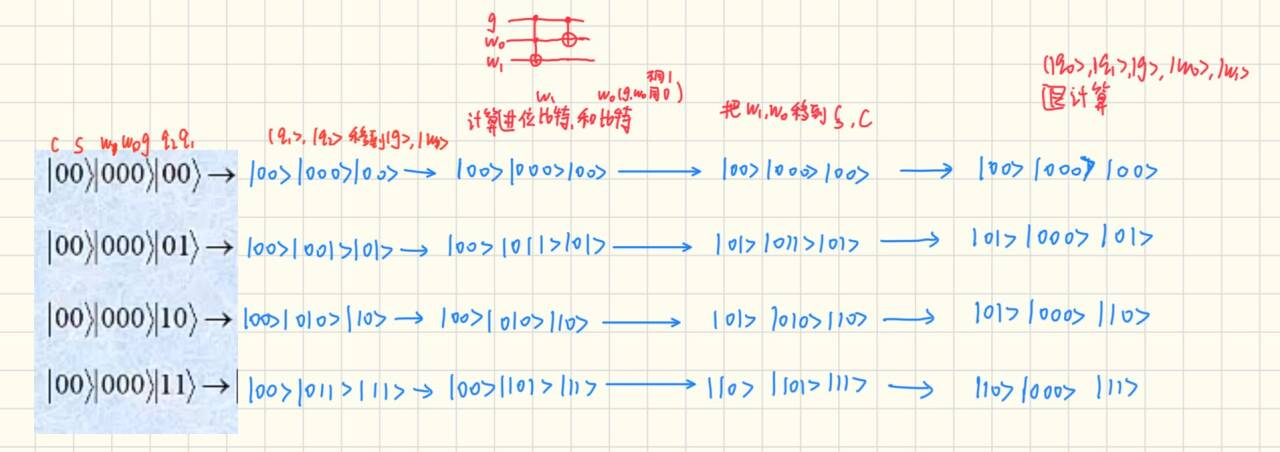 g
w₀
w₁
w₁ w₀(g,w₀同0)
计算进位比特,和比特
把w₁,w₀移到S,C
(|q₀>,|q₁>,|g>,|w₀>,|w₁>
逆计算
C S w₁ w₀ g q₂ q₁
|q₁>,|q₂>移到|g>,|w₀>
|00⟩|000⟩|00⟩ → |00>|000>|00> → |00>|000>|00> → |00>|000>|00> → |00>|000>|00>
|00⟩|000⟩|01⟩ → |00>|001>|01> → |00>|011>|01> → |01>|011>|01> → |01>|000>|01>
|00⟩|000⟩|10⟩ → |00>|010>|10> → |00>|010>|10> → |01>|010>|10> → |01>|000>|10>
|00⟩|000⟩|11⟩ → |00>|011>|11> → |00>|101>|11> → |10>|101>|11> → |10>|000>|11>